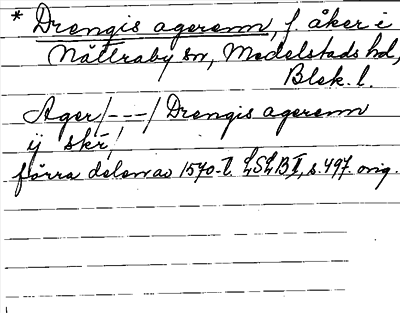 * Drengis agerenn, f. åker i
Nättraby sn, Medelstads hd,
Blek. l.
Ager /---/ Drengis agerenn
ij skr,
förra delen av 1570-t. LSLB I, s. 497. orig.